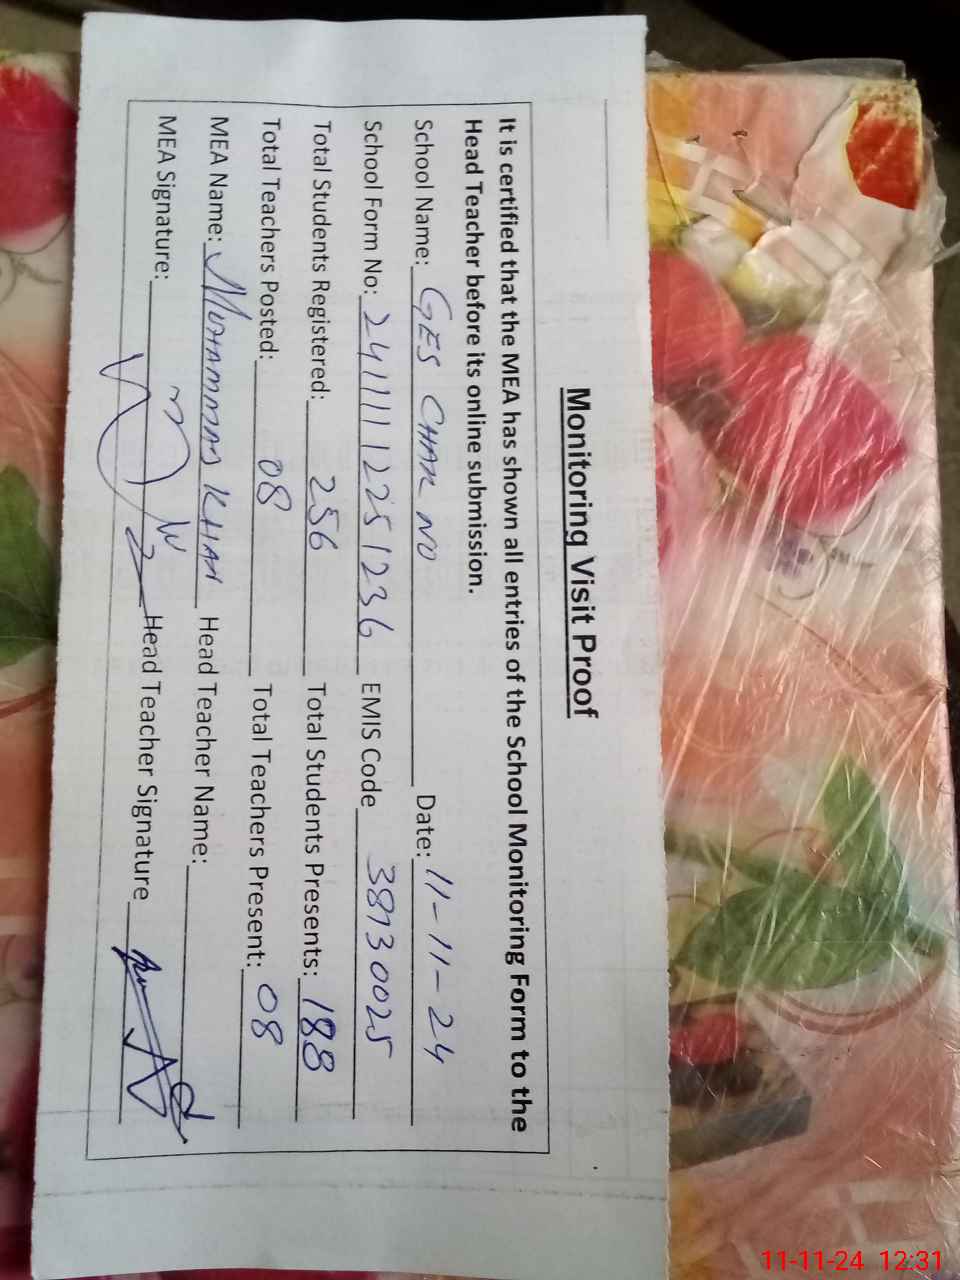 Monitoring Visit Proof
It is certified that the MEA has shown all entries of the School Monitoring Form to the
Head Teacher before its online submission.
School Name: GES CHAK NO Date: 11-11-24
School Form No: 2411112251236 EMIS Code 38130025
Total Students Registered: 256 Total Students Presents: 188
Total Teachers Posted: 08 Total Teachers Present: 08
MEA Name: MUHAMMAD KHAN Head Teacher Name:
MEA Signature: Head Teacher Signature
11-11-24 12:31